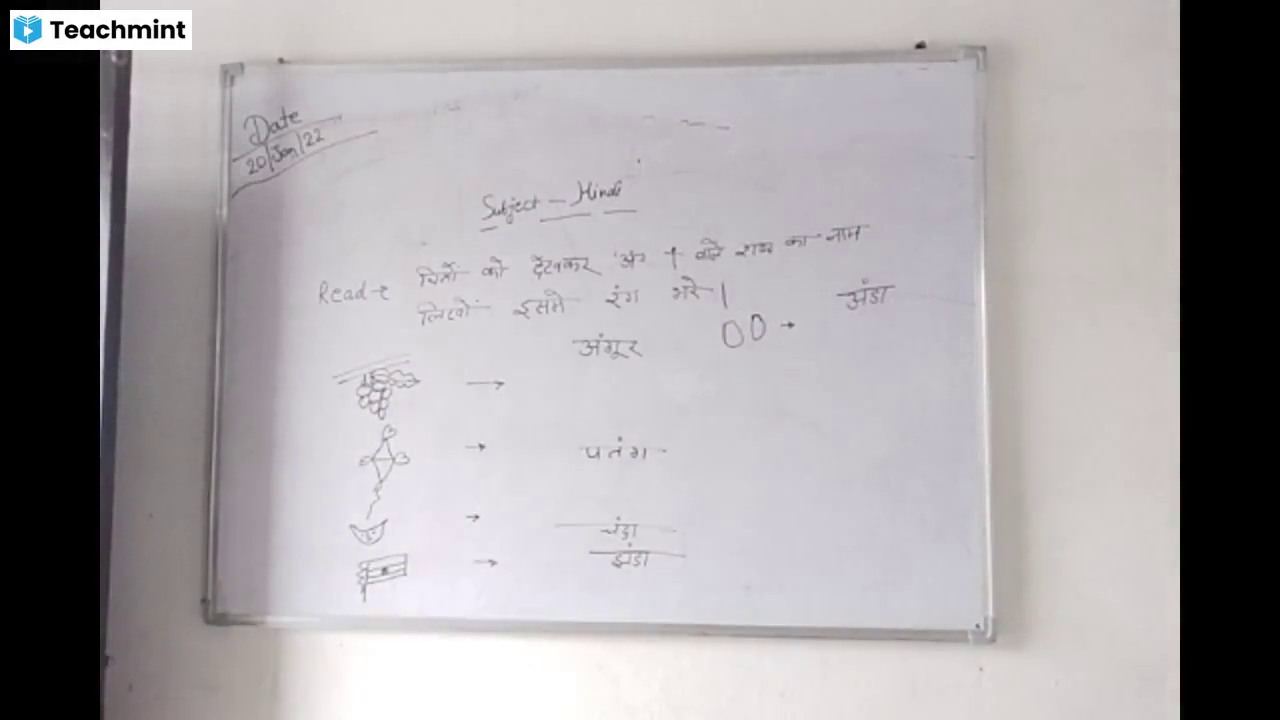 Teachmint
Date
20/Jan/22
Subject - Hindi
Read → चित्रों को देखकर 'अं' वाले शब्द का नाम
लिखों इसमे रंग भरे।
अंगूर
→ अंडा
→
→ पतंग
→ चंदा
→ झंडा